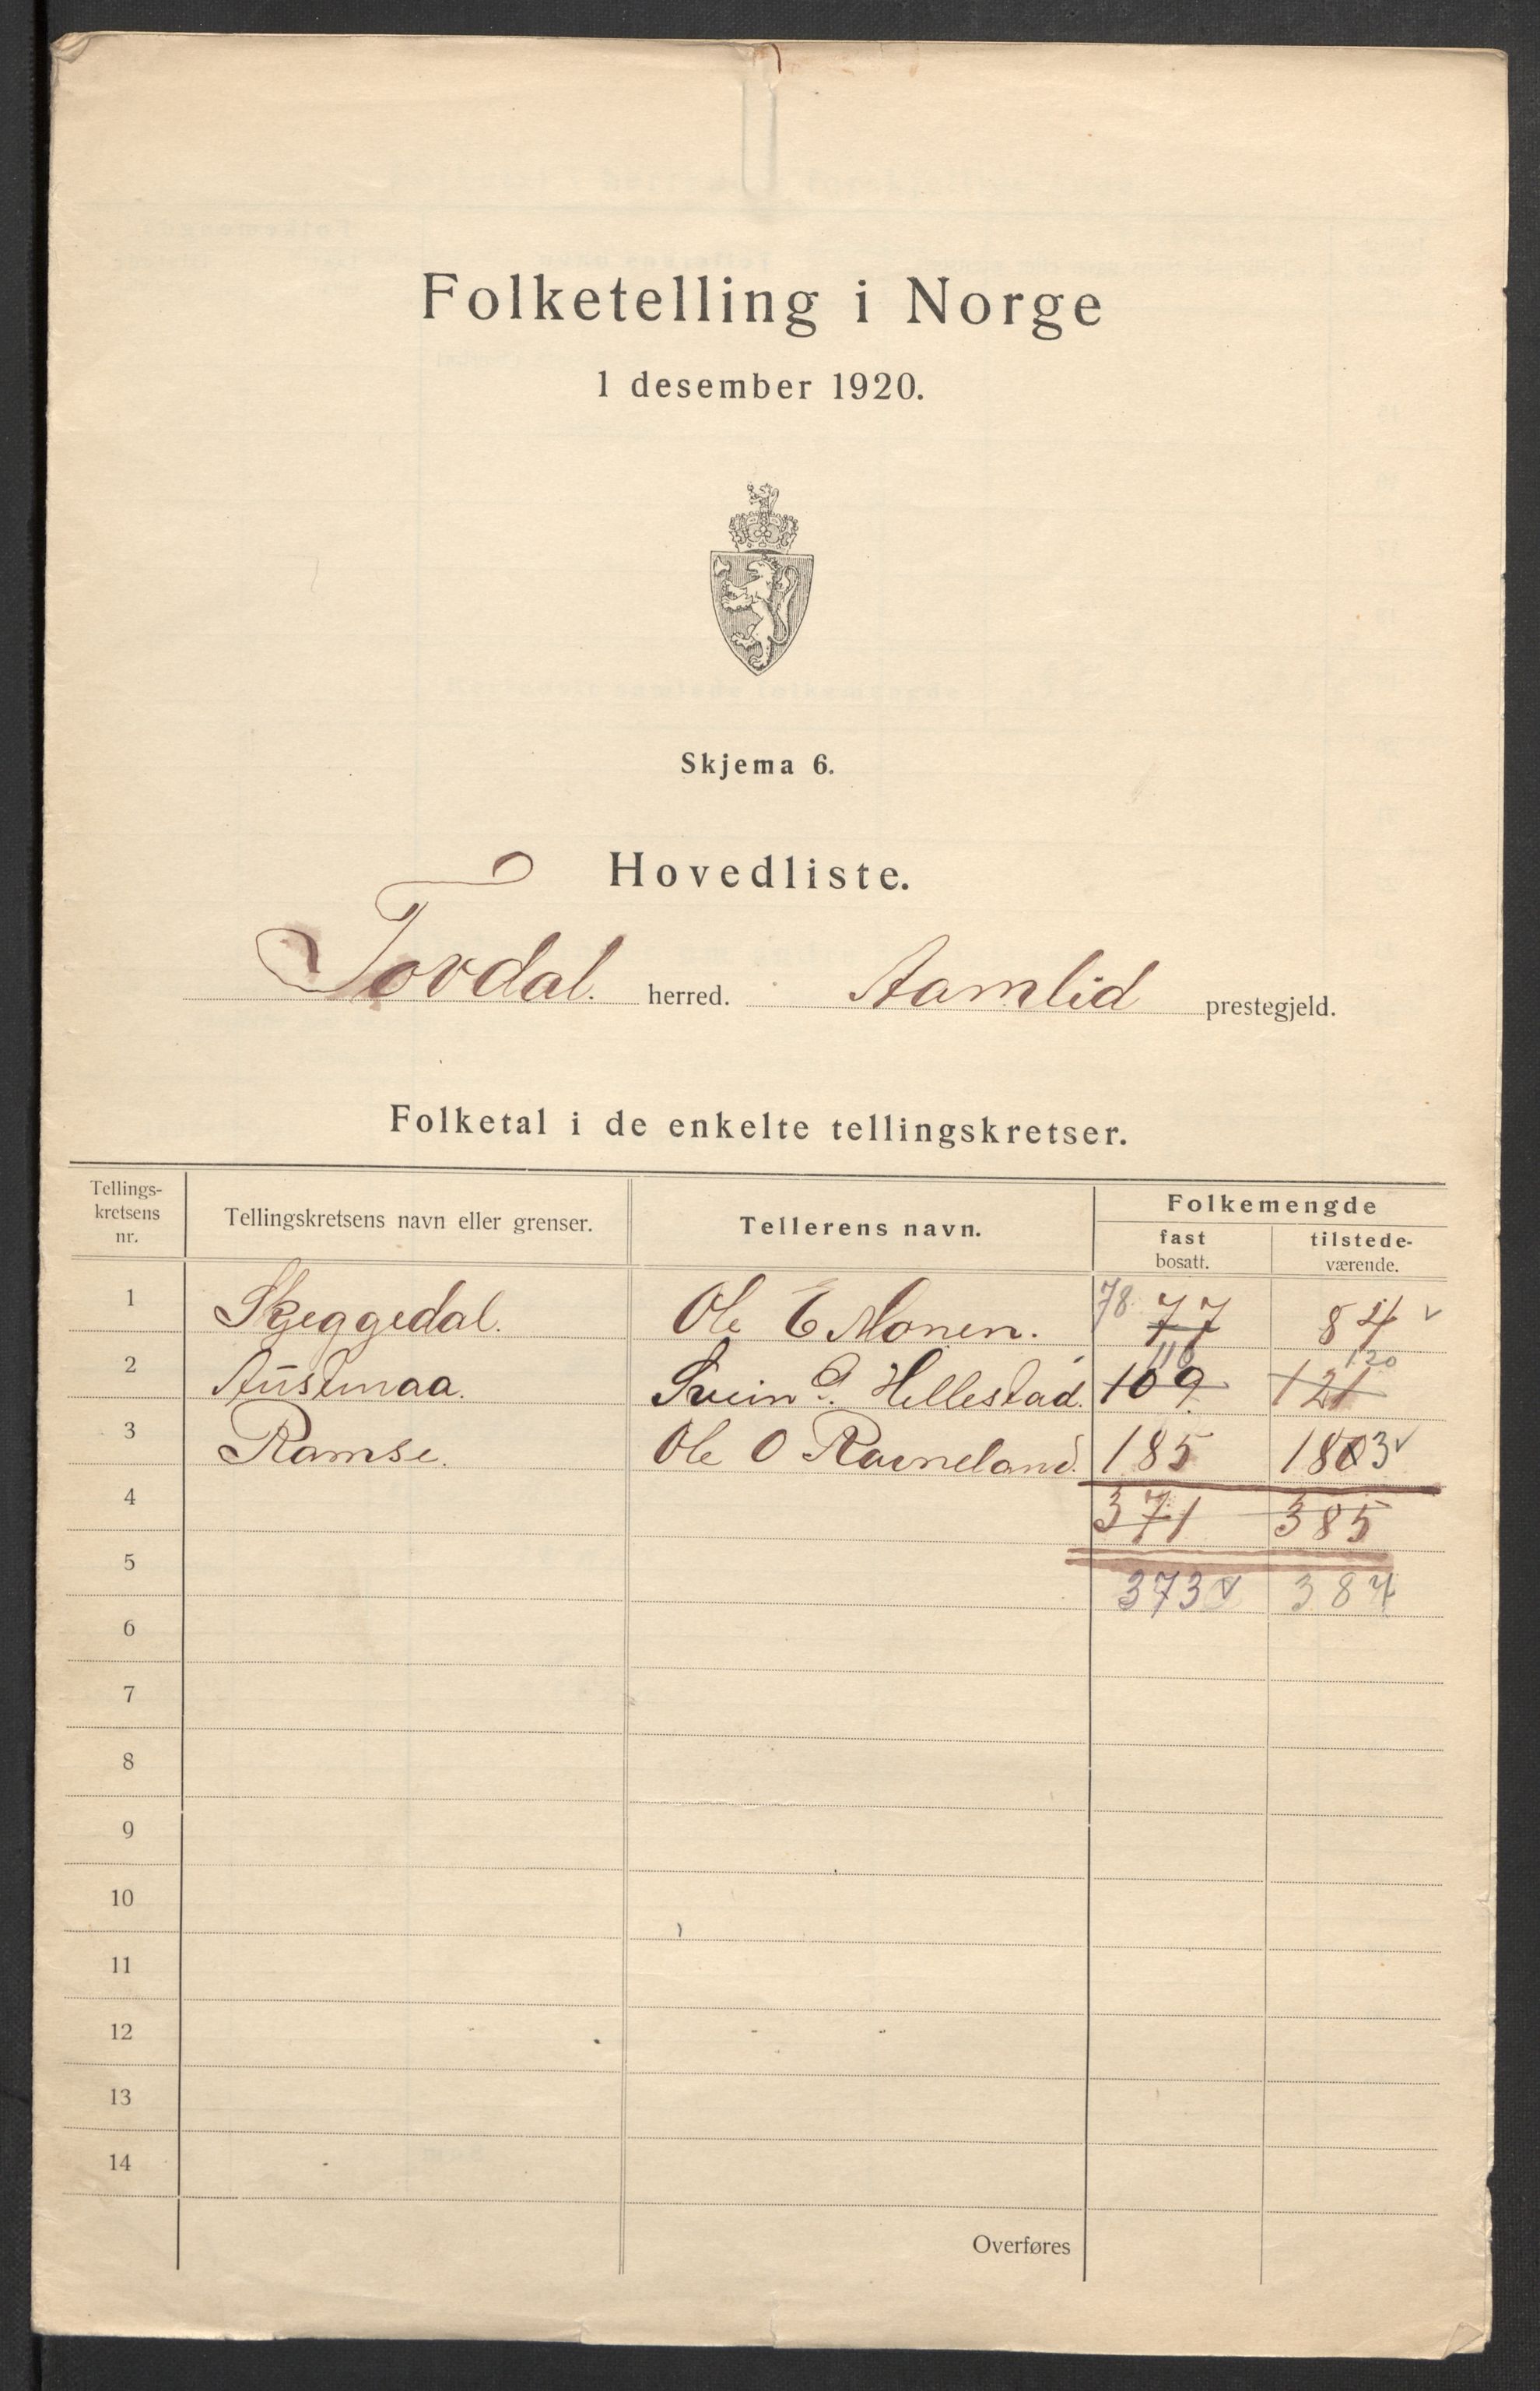 Folketelling i Norge
1 desember 1920.
Skjema 6.
Hovedliste.
Tovdal. herred. Aamlid prestegjeld.
Folketal i de enkelte tellingskretser.
Tellings-
kretsens
nr.
Tellingskretsens navn eller grenser.
Tellerens navn.
Folkemengde
fast
bosatt.
tilstede-
værende.
1 Skjeggedal. Ole E Monen. 78 77 84
110 120
2 Austenaa. Svein Hellestad. 109 121
3 Ramse. Ole O Ravneland. 185 1803
4 371 385
5 373 384
6
7
8
9
10
11
12
13
14
Overføres